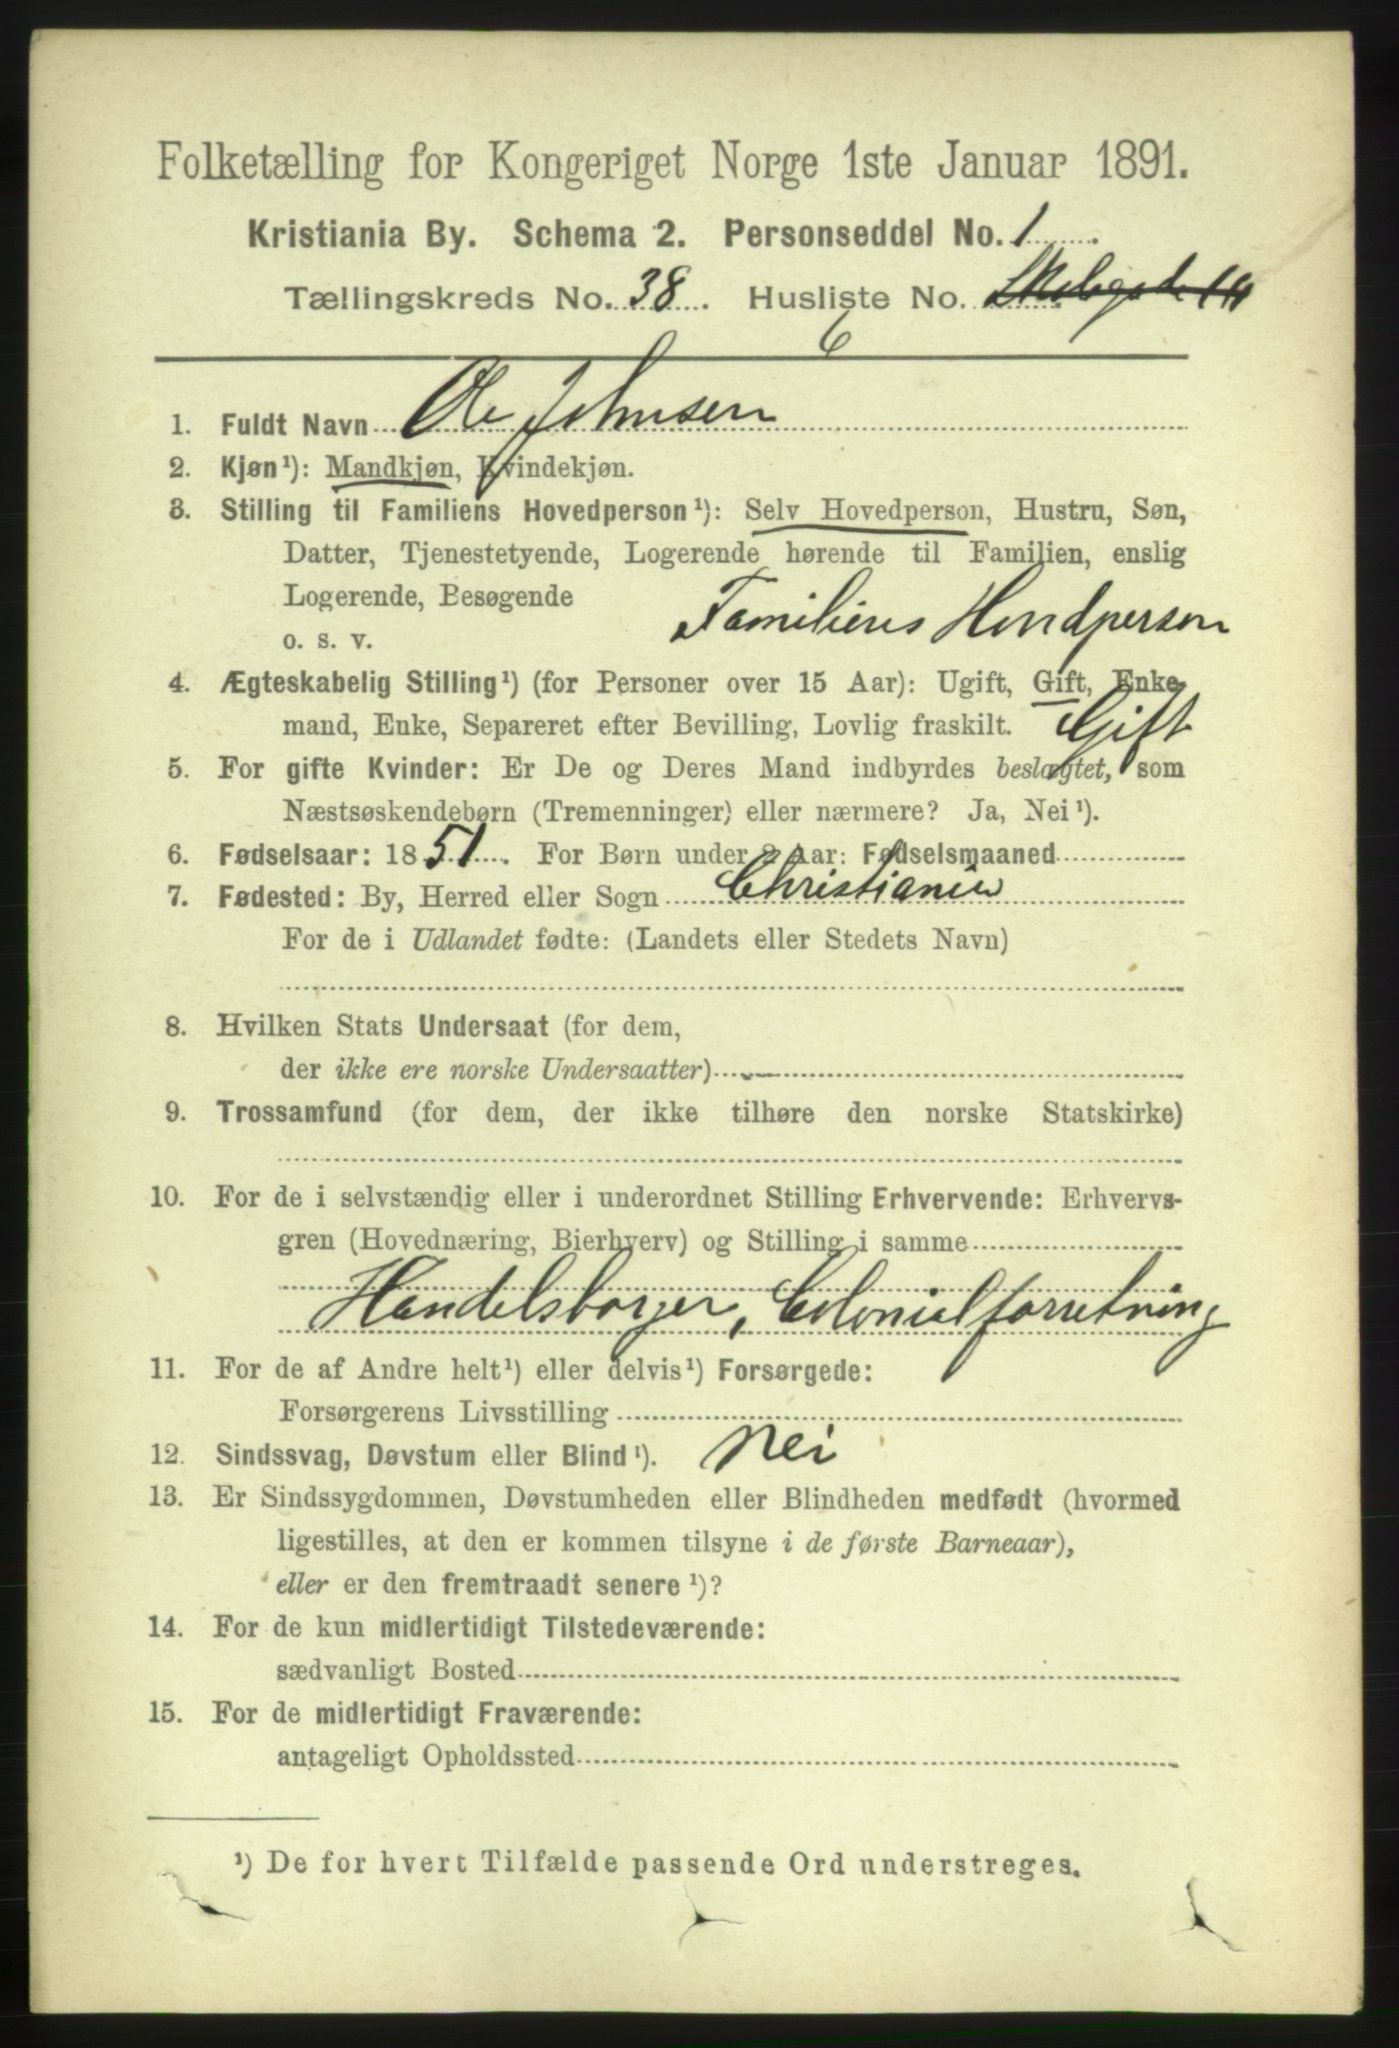 Folketælling for Kongeriget Norge 1ste Januar 1891.
Kristiania By. Schema 2. Personseddel No. 1
Tællingskreds No. 38. Husliste No. 14
6
1. Fuldt Navn Ole Johnsen
2. Kjøn¹): Mandkjøn, Kvindekjøn.
3. Stilling til Familiens Hovedperson¹): Selv Hovedperson, Hustru, Søn,
Datter, Tjenestetyende, Logerende hørende til Familien, enslig
Logerende, Besøgende
o. s. v. Familiens Hovdperson
4. Ægteskabelig Stilling¹) (for Personer over 15 Aar): Ugift, Gift, Enke-
mand, Enke, Separeret efter Bevilling, Lovlig fraskilt. Gift
5. For gifte Kvinder: Er De og Deres Mand indbyrdes beslægtet, som
Næstsøskendebørn (Tremenninger) eller nærmere? Ja, Nei¹).
6. Fødselsaar: 1851. For Børn under 2 Aar: Fødselsmaaned
7. Fødested: By, Herred eller Sogn Christiania
For de i Udlandet fødte: (Landets eller Stedets Navn)
8. Hvilken Stats Undersaat (for dem,
der ikke ere norske Undersaatter)
9. Trossamfund (for dem, der ikke tilhøre den norske Statskirke)
10. For de i selvstændig eller i underordnet Stilling Erhvervende: Erhvervs-
gren (Hovednæring, Bierhverv) og Stilling i samme
Handelsborger, Colonialforretning
11. For de af Andre helt¹) eller delvis¹) Forsørgede:
Forsørgerens Livsstilling
12. Sindssvag, Døvstum eller Blind¹). Nei
13. Er Sindssygdommen, Døvstumheden eller Blindheden medfødt (hvormed
ligestilles, at den er kommen tilsyne i de første Barneaar),
eller er den fremtraadt senere¹)?
14. For de kun midlertidigt Tilstedeværende:
sædvanligt Bosted
15. For de midlertidigt Fraværende:
antageligt Opholdssted
¹) De for hvert Tilfælde passende Ord understreges.